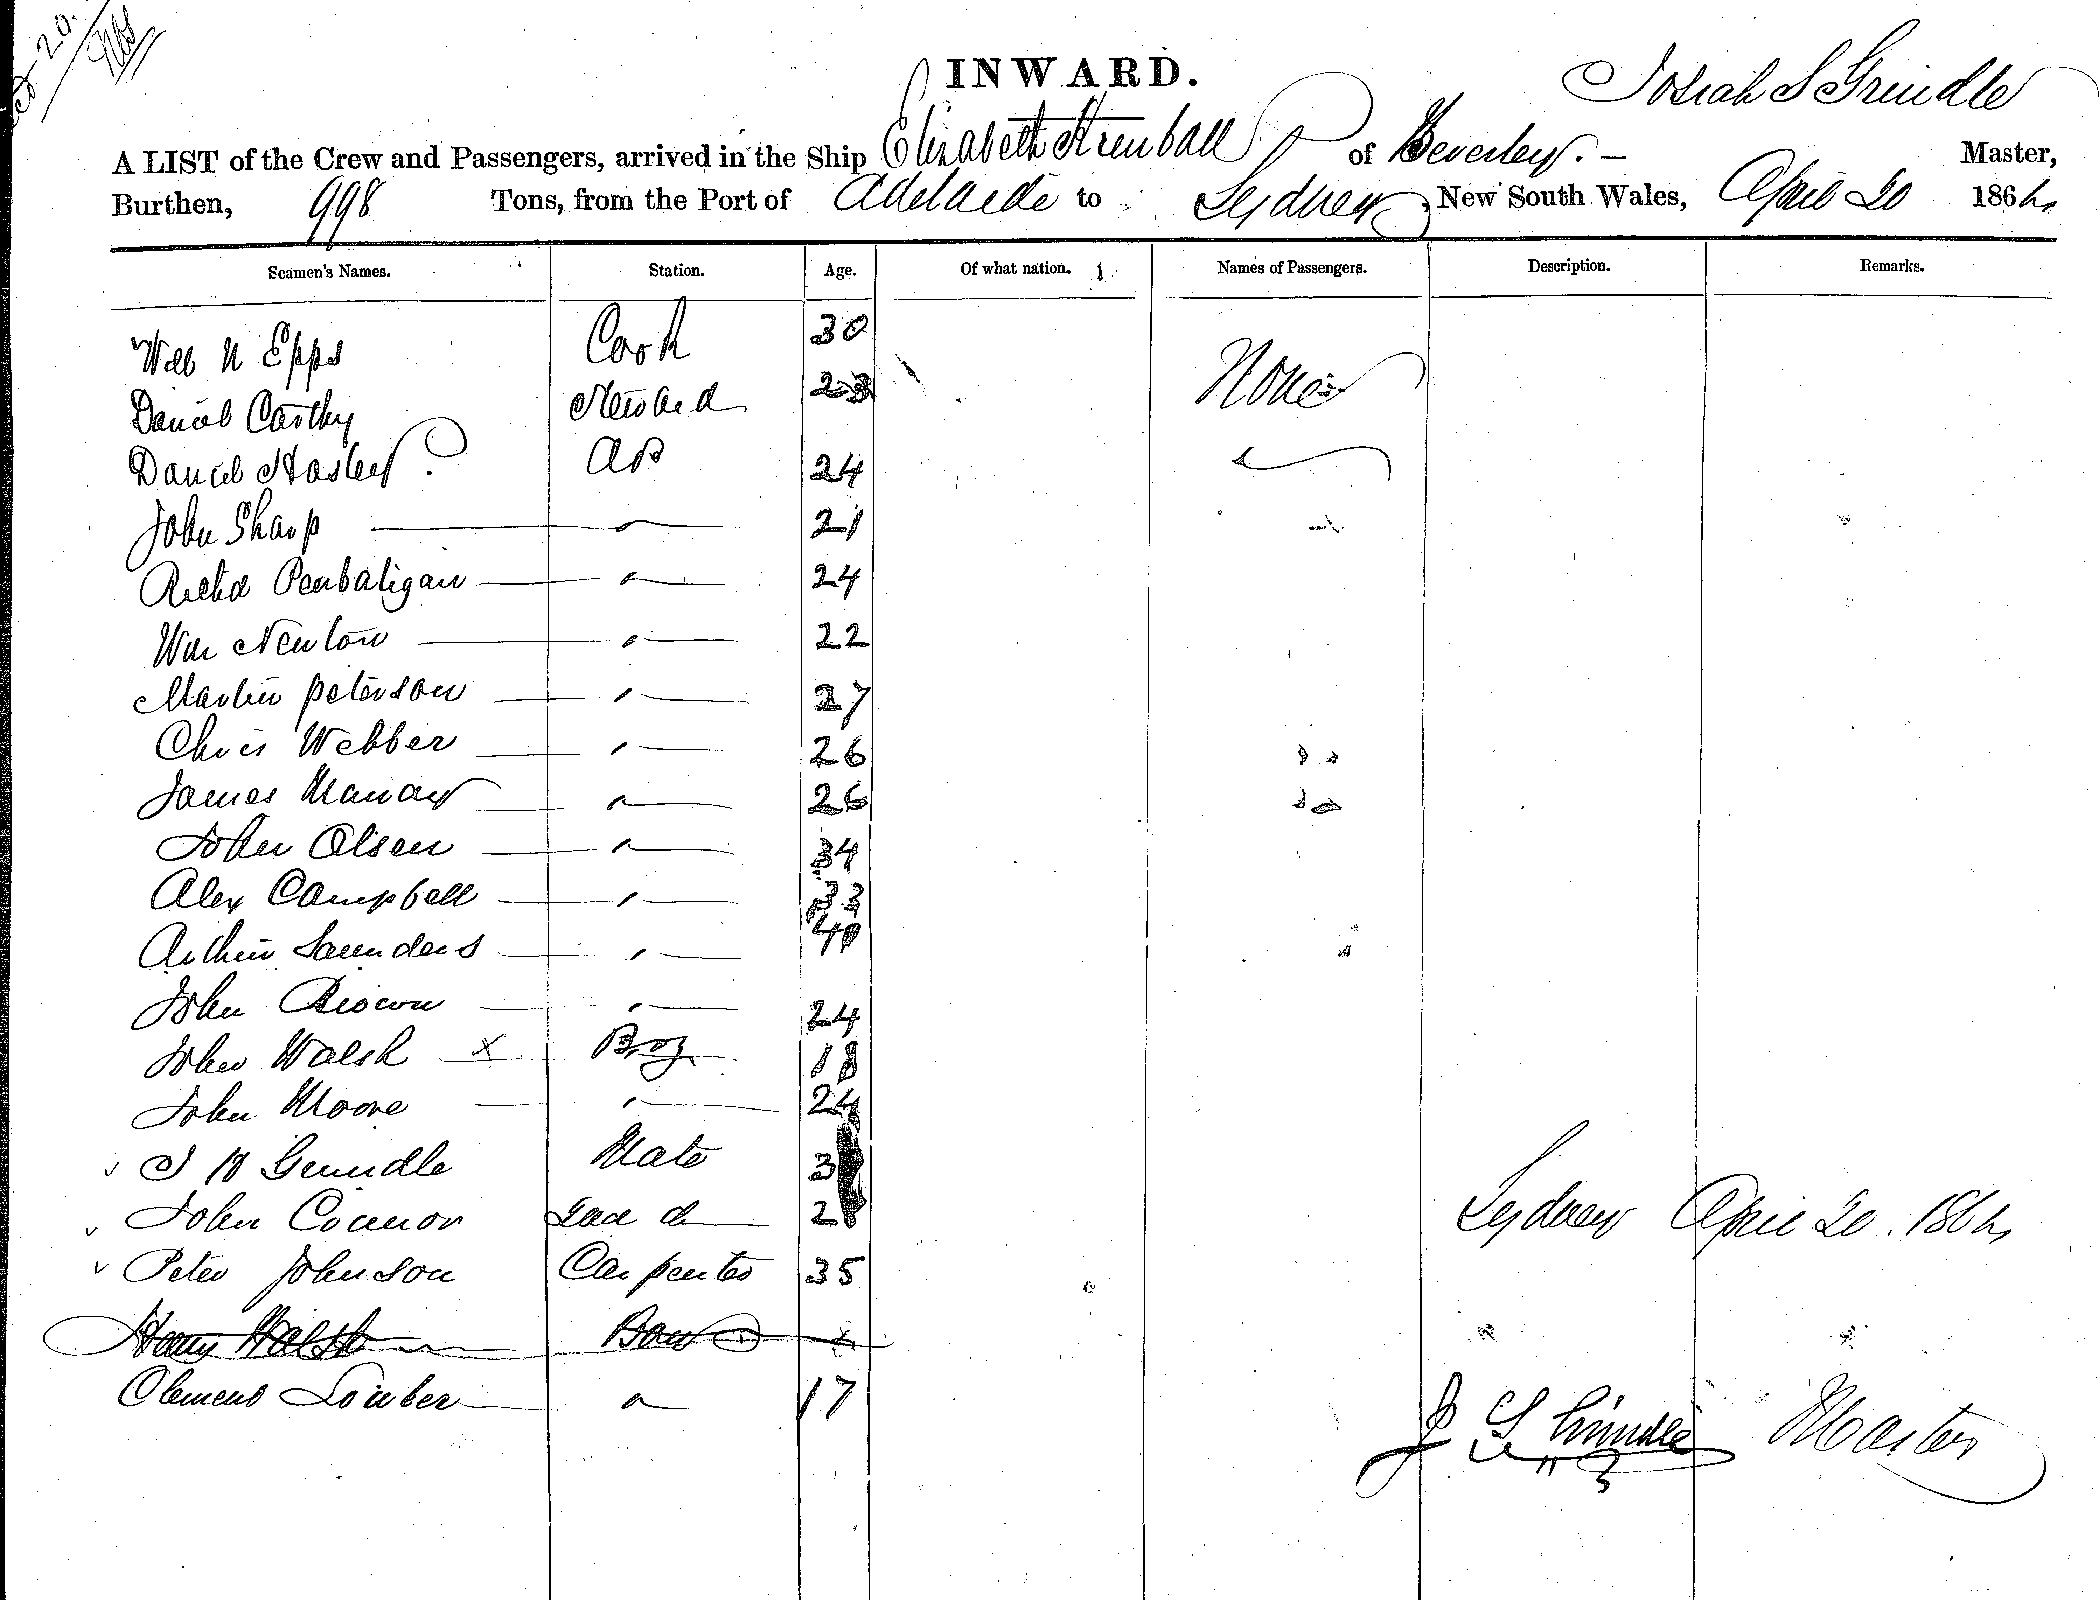 INWARD.
Josiah S Grindle
A LIST of the Crew and Passengers, arrived in the Ship Elizabeth Kimball of Beverley. — Master,
Burthen, 998 Tons, from the Port of Adelaide to Sydney, New South Wales, April 20 1864
Seamen's Names. Station. Age. Of what nation. Names of Passengers. Description. Remarks.
Will N Epps Cook 30 None
Daniel Carthy Steward 23
Daniel AB 24
John Sharp " 21
Richd Penbaligan " 24
Wm Newton " 22
Martin peterson " 27
Chris Webber " 26
James " 26
John Olsen " 34
Alex Campbell " 33
Arthur Saunders " 40
John Brown " 24
John Walsh x Boy 18
John Moore " 24
Grindle Mate 3
John Connor 2 Sydney April 20. 1864
Peter Johnson Carpenter 35
Harry Walsh
Clemens " 17
J S Grindle Master